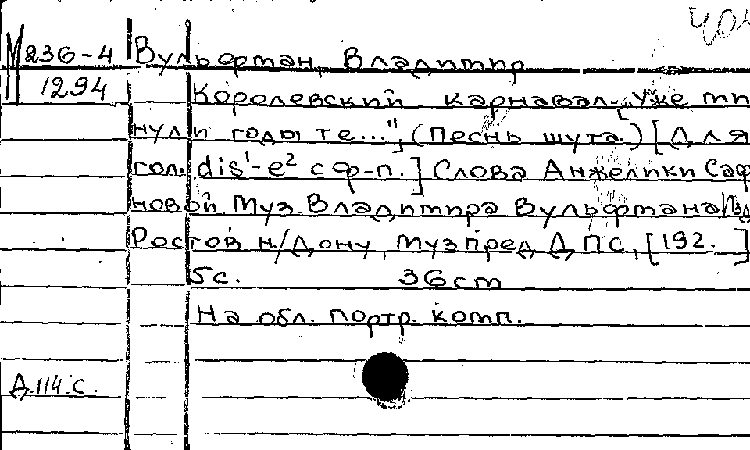 М 236-4
1294
Вульфман, Владимир
Королевский карнавал. ["Уже ми
нули годы те...", (Песнь шута.) [Для
гол. dis¹-e² с ф-п.] Слова Анжелики Саф
новой Муз Владимира Вульфмана
Ростов н/Дону, Музпред ДПС, [192. ]
5с. 36cm
На обл. портр. комп.
Д.114.с.